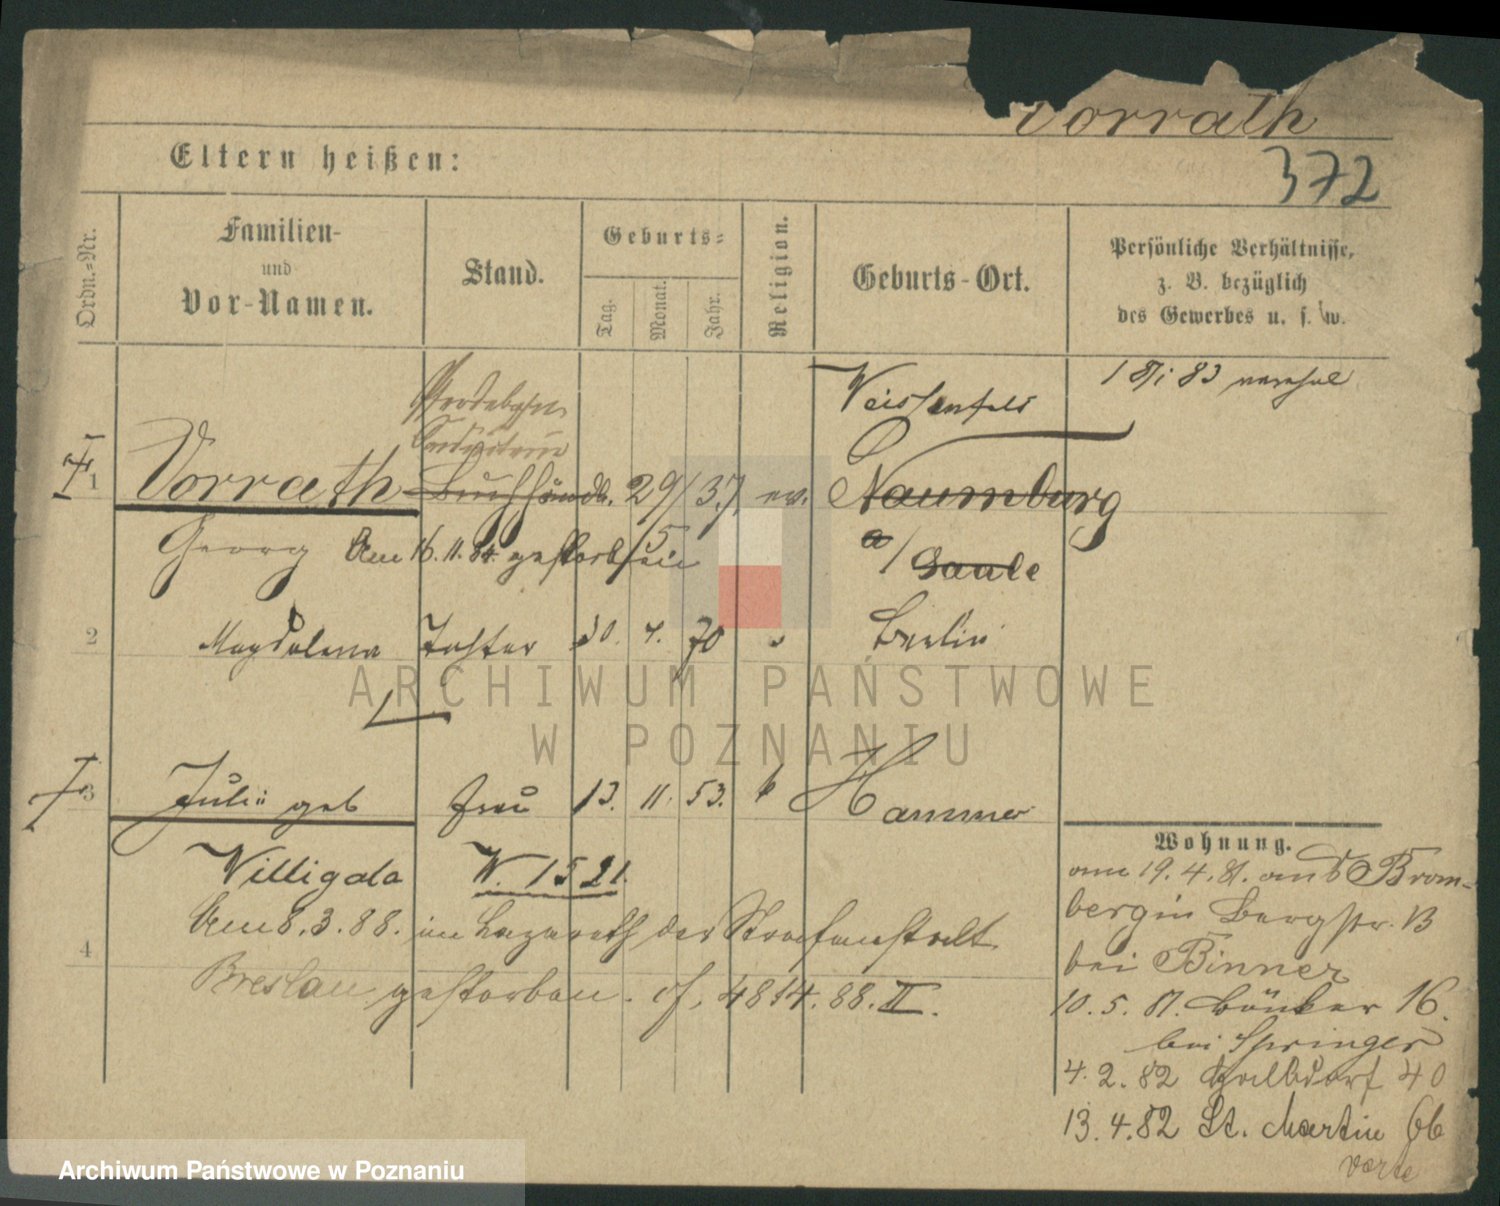 Vorrath
372
Eltern heißen:
Ordn.-Nr.
Familien-
und
Vor-Namen.
Stand.
Geburts-
Tag.
Monat.
Jahr.
Religion.
Geburts-Ort.
Persönliche Verhältnisse,
z. B. bezüglich
des Gewerbes u. s. w.
83
Weissenfels
1 Vorrath Buchhändl. 29/ 37. ev. Naumburg
5
Georg Am 16.11.84. gestorben
a/ Saale
2 Magdalena Tochter 30. 4. 70 Berlin
3 Julie geb Frau 13. 11. 53. k Hammer
Willigala W. 1521.
Am 8.3.88. im Lazareth der Strafanstalt
4
Breslau gestorben. cf. 4814.88.II.
Wohnung.
am 19.4.81. aus Brom-
berg in Bergstr. 13
bei Binner
10.5.81. Bäcker 16.
bei Springer
4.2.82 40
13.4.82 St. Martin 66
ARCHIWUM PAŃSTWOWE
W POZNANIU
Archiwum Państwowe w Poznaniu